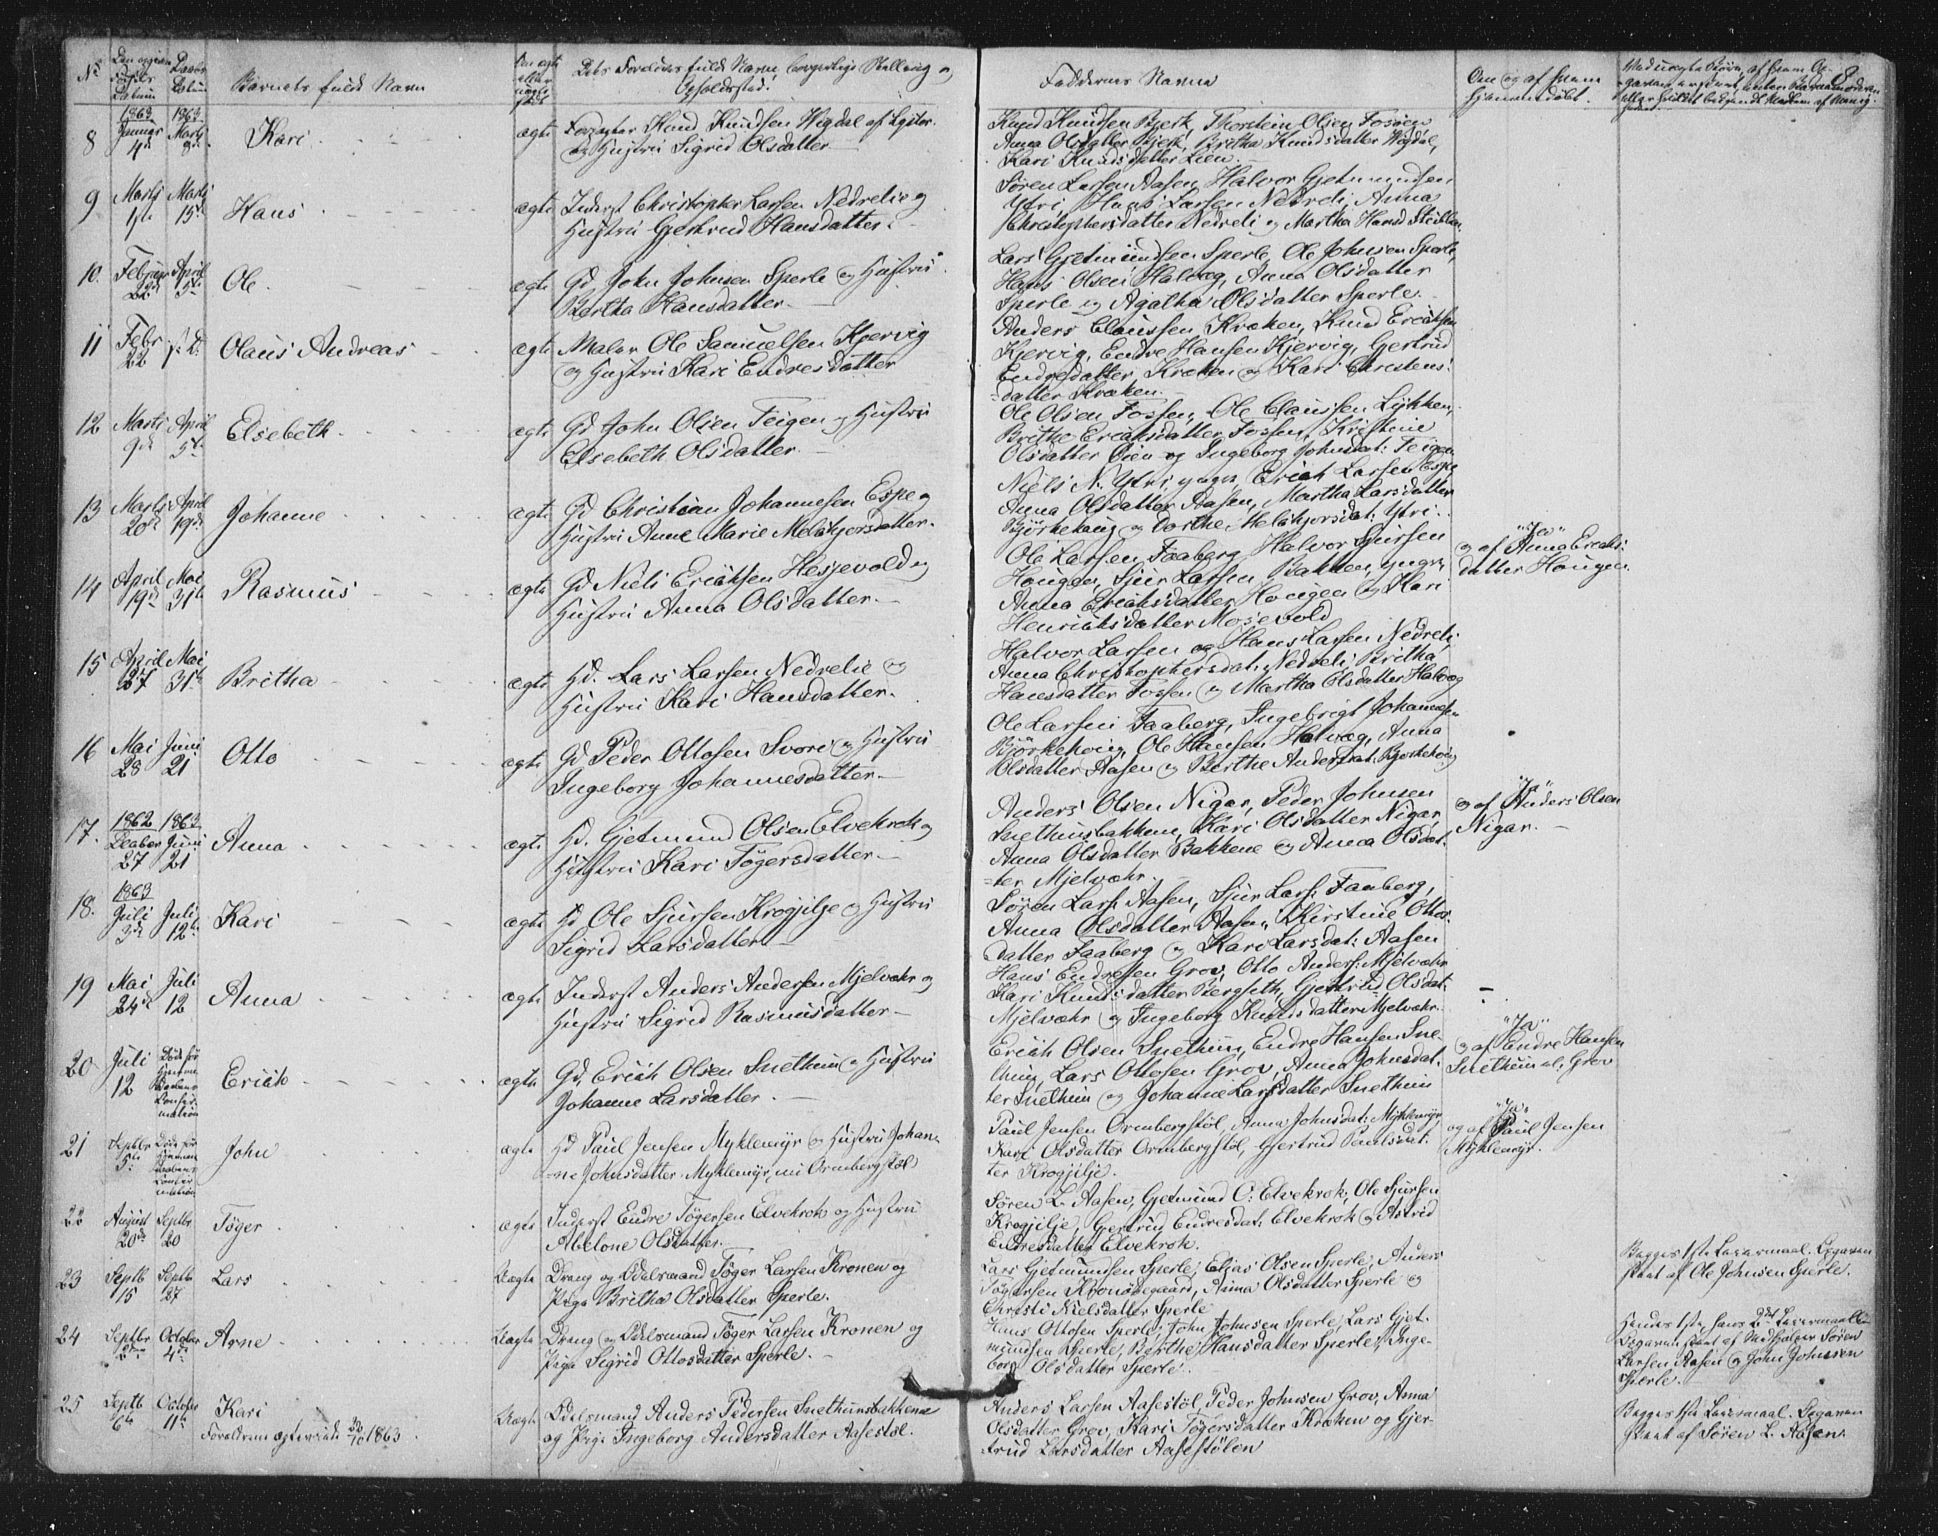 8
No
Den opgivne Fødsels Datum
Daabs Datum
Barnets fulde Navn
Om ægte eller uægte født
Dets Forældres fulde Navn, borgerlige Stilling og
Opholdssted.
Faddernes Navne
Om og af hvem
hjemmedøbt.
1863 1863
8 Januar 4de Marts 8de Kari ægte
Forpagter Knud Knudsen Hegdal af Lyster
og Hustru Sigrid Olsdatter
Knud Knudsen Bjerk, Thorstein Olsen Fossøen
Anna Olsdatter Bjerk, Britha Knudsdatter Høgdal,
Kari Knudsdatter Lien.
9 Marts 1ste Marts 15de Hans ægte
Inderst Christopher Larsen Nedrelie og
Hustru Gjertrud Hansdatter
Søren Larsen Aasen, Halvor Gjetmundsen
Ytri, Hans Larsen Nedreli, Anna
Christophersdatter Nedreli og Martha Hansd
10. Februar 22de April 5te Ole. ægte
Gd John Johnsen Sperle og Hustru
Bertha Hansdatter.
Lars Gjetmundsen Sperle, Ole Johnsen Sperle,
Hans Olsen Halvæg, Anna Olsdatter
Sperle og Agatha Olsdatter Sperle.
11 Febr 22 s. D. Olaus Andreas ægte
Maler Ole Samuelsen Kjervig
og Hustru Kari Endresdatter
Anders Claussen Kræken, Knud Erichsen
Kjervig, Endre Hansen Kjervig, Gjertrud
Endresdatter Kræken og Kari Christens-
datter Kræken.
12 Marts 9de April 5te Elsebeth. ægte
Gd John Olsen Teigen og Hustru
Elsebeth Olsdatter.
Ole Olsen Fossen, Ole Claussen Lykken,
Brithe Erichsdatter Fossen, Kristine
Olsdatter Øien og Ingeborg Johnsdat: Teigen
13 Marts 20de April 19de Johanne ægte
Gd Christian Johannesen Espe og
Hustru Anne Marie Melchjorsdatter.
Niels N. Ytri, yngre, Erich Larsen Espe
Anna Olsdatter Aasen, Martha Larsdatter
Bjørkehaug og Dorthe Melchjorsdat: Ytri.
14 April 19de Mai 31te Rasmus ægte
Gd Niels Erichsen Hesjevold og
Hustru Anna Olsdatter.
Ole Larsen Faaberg, Halvor Sjursen
Hougen, Sjur Larsen Bakken, yngre,
Anna Erichsdatter Hougen og Kari
Henrichsdatter Mosevold
"Ja"
og af Anna Erichs-
datter Hougen
15 April 27 Mai 31te Britha ægte
Gd. Lars Larsen Nedrelie og
Hustru Kari Hansdatter.
Halvor Larsen og Hans Larsen Nedreli,
Anna Christophersdat: Nedreli, Britha
Hansdatter Fossen og Martha Olsdatter Halvæg
16 Mai 28 Juni 21 Otto ægte
Gd Peder Ottosen Svori og Hustru
Ingeborg Johannesdatter.
Ole Larsen Faaberg, Ingebrigt Johannesen
Bjørkehoug, Ole Hansen Halvæg, Anna
Olsdatter Aasen og Berthe Andersdat: Bjørkehoug
17. 1862 Decaber 27 1863 Juni 21 Anna ægte
Gd. Gjetmund Olsen Elvekrok og
Hustru Kari Tøgersdatter.
Anders Olsen Nigar, Peder Johnsen
Snethunsbakkene, Kari Olsdatter Nigar,
Anna Olsdatter Bakkene og Anna Olsdat-
ter Mjelvæhr.
"Ja"
og af Anders Olsen
Nigar.
18. 1863 Juli 3de Juli 12te Kari ægte
Gd Ole Sjursen Krogjilje og Hustru
Sigrid Larsdatter
Søren Lars: Aasen, Sjur Lars: Faaberg,
Anna Olsdatter Aasen, Kirstine Ottos-
datter Faaberg og Kari Larsdat: Aasen
19 Mai 24de Juli 12 Anna ægte
Inderst Anders Andersen Mjelvæhr og
Hustru Sigrid Rasmusdatter
Hans Endresen Grov, Otto Anders: Mjelvæhr
Kari Knudsdatter Bergseth, Gjertrud Olsdat:
Mjelvæhr og Ingeborg Knudsdatter Mjelvæhr.
20 Juli 12 Død før Hjemme-Daabens Confirmation Erich ægte
Gd. Erich Olsen Snethun og Hustru
Johanne Larsdatter.
Erich Olsen Snethun, Endre Hansen Sne-
thun, Lars Ottosen Grov, Anna Johnsdat-
ter Snethun og Johanne Larsdatter Snethun
"Ja"
og af Endre Hansen
Snethun al: Grov
21 Septbr 5te Død før Hjemme Daabens Confirmation John ægte
Gd Paul Jensen Myklemyr og Hustru Johan-
ne Johnsdatter Myklemyr, nu Ormbergstøl
Paul Jensen Ormbergstøl, Anna Johnsdat: Myklemyr,
Kari Olsdatter Ormbergstøl, Gjertrud Paulsdat-
ter Krogjilje
"Ja"
og af Paul Jensen
Myklemyr.
22 August 20de Septbr 20 Tøger ægte
Inderst Endre Tøgersen Elvekrok og Hustru
Abelone Olsdatter.
Søren L. Aasen, Gjetmund O: Elvekrok, Ole Sjursen
Krogjilje, Gjertrud Endresdat. Elvekrok og Astrid
Endresdatter Elvekrok.
23 Septb 15 Septb 27 Lars Uægte
Dreng og Odelsmand Tøger Larsen Kronen og
Pige Britha Olsdatter Sperle.
Lars Gjetmundsen Sperle, Elias Olsen Sperle, Anders
Tøgersen Kronødegaard, Anna Olsdatter Sperle og
Christi Nielsdatter Sperle
Begges 1ste Leiermaal. Opgaven
skeet af Ole Johnsen Sperle.
24 Septbr October 4de Arne Uægte
Dreng og Odelsmand Tøger Larsen Kronen og
Pige Sigrid Ottosdatter Sperle.
Hans Ottosen Sperle, John Johnsen Sperle, Lars Gjet-
mundsen Sperle, Berthe Hansdatter Sperle, Inge-
borg Olsdatter Sperle.
Hendes 1ste, hans 2det Leiermaal.
Opgaven skeet af Medhjelper Søren
Larsen Aasen og John Johnsen
Sperle.
25 Septb 6te October 11te Kari
Forældrene ægteviede 30/10 1863.
Uægte
Odelsmand Anders Pedersen Snethunsbakkene
og Pige Ingeborg Andersdatter Aasestøl.
Anders Larsen Aasestøl, Peder Johnsen Grov, Anna
Olsdatter Grov, Kari Tøgersdatter Kræken og Gjer-
trud Larsdatter Aasestølen
Begges 1ste Leiermaal. Opgaven
skeet af Søren L. Aasen.